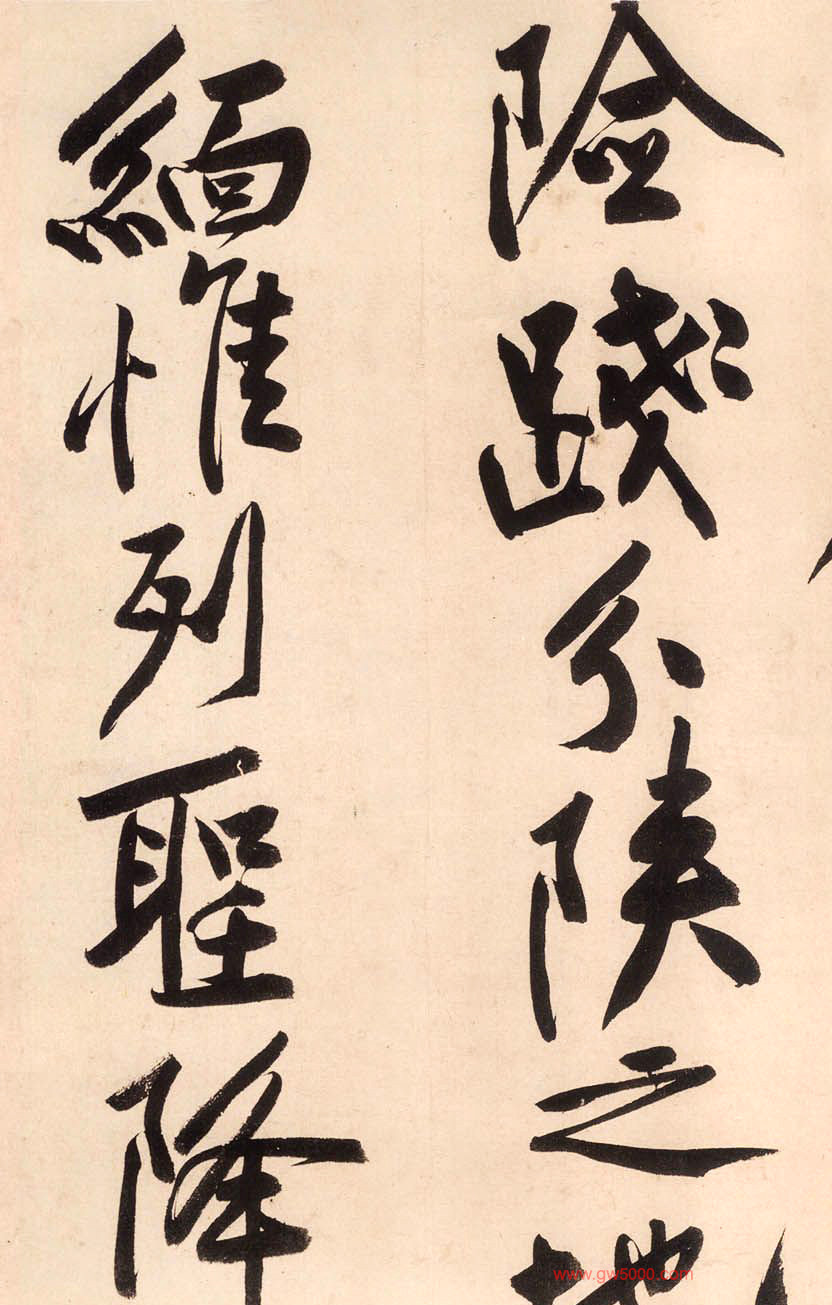 險踐分陝之地
緬惟列聖降
www.gw5000.com